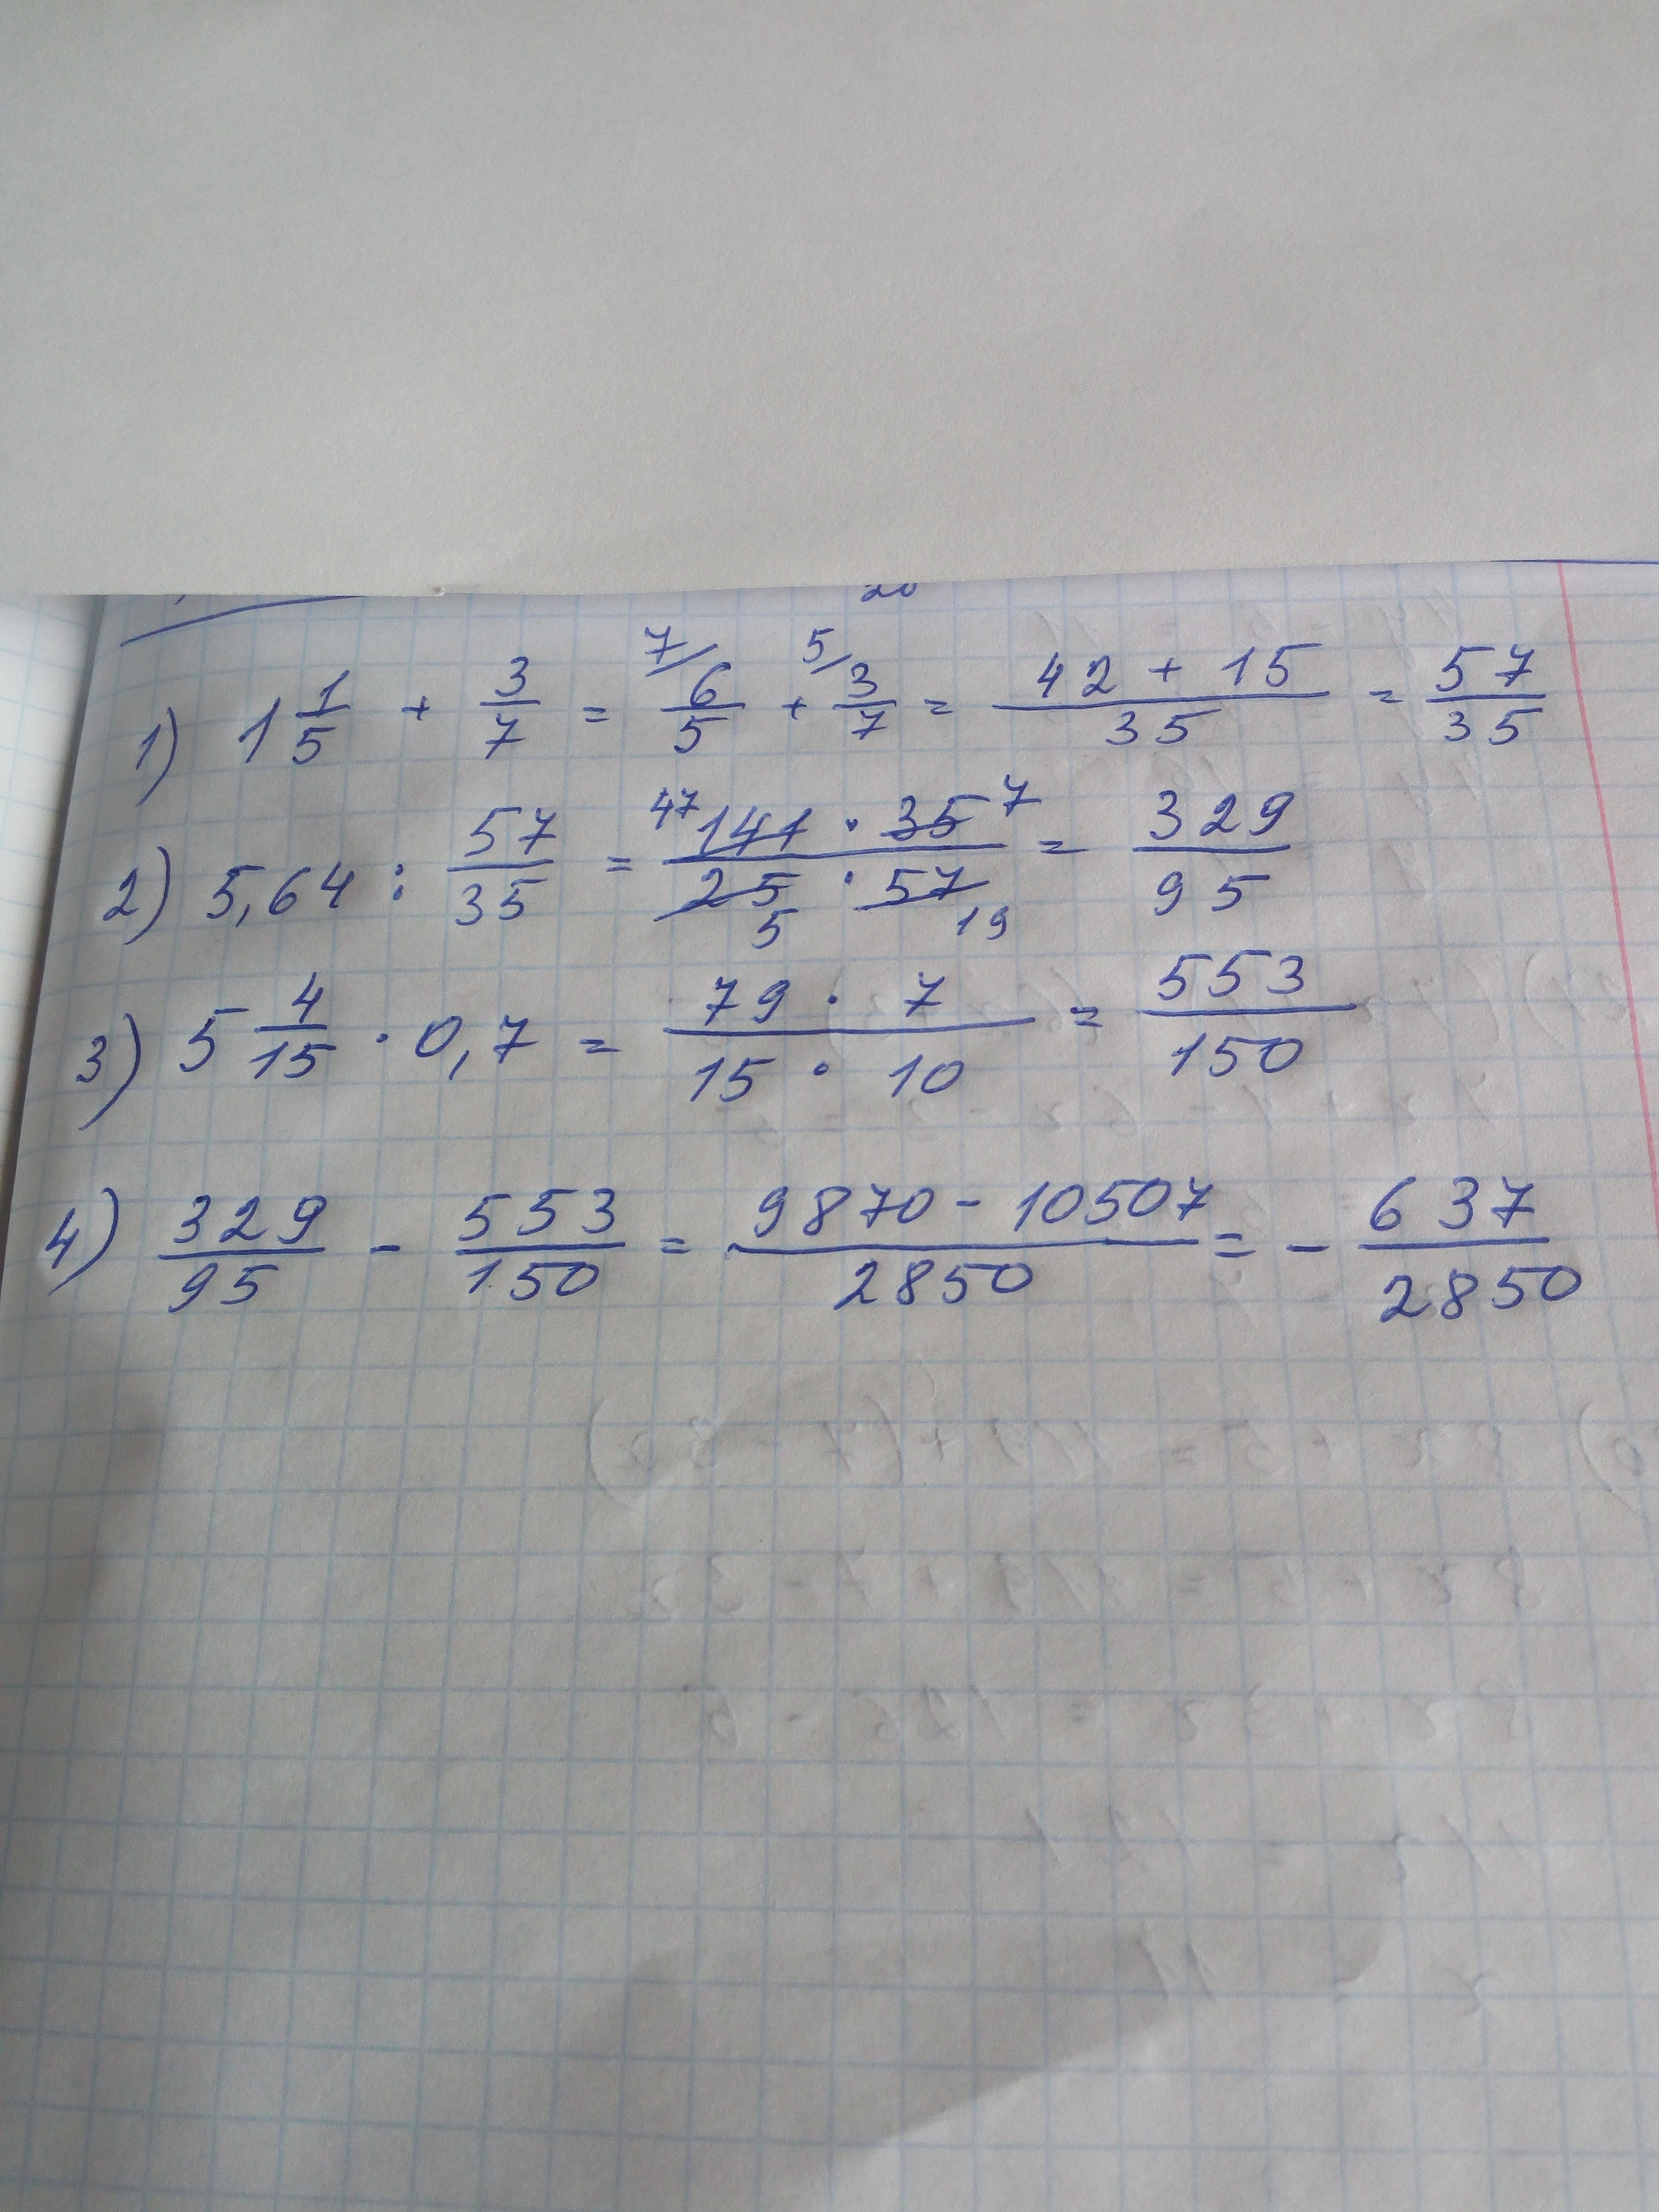 20
1) 1 1/5 + 3/7 = 7/ 6/5 + 5/ 3/7 = (42 + 15)/35 = 57/35
2) 5,64 : 57/35 = (47 141 · 35 7)/(25 5 · 57 19) = 329/95
3) 5 4/15 · 0,7 = (79 · 7)/(15 · 10) = 553/150
4) 329/95 - 553/150 = (9870 - 10507)/2850 = - 637/2850